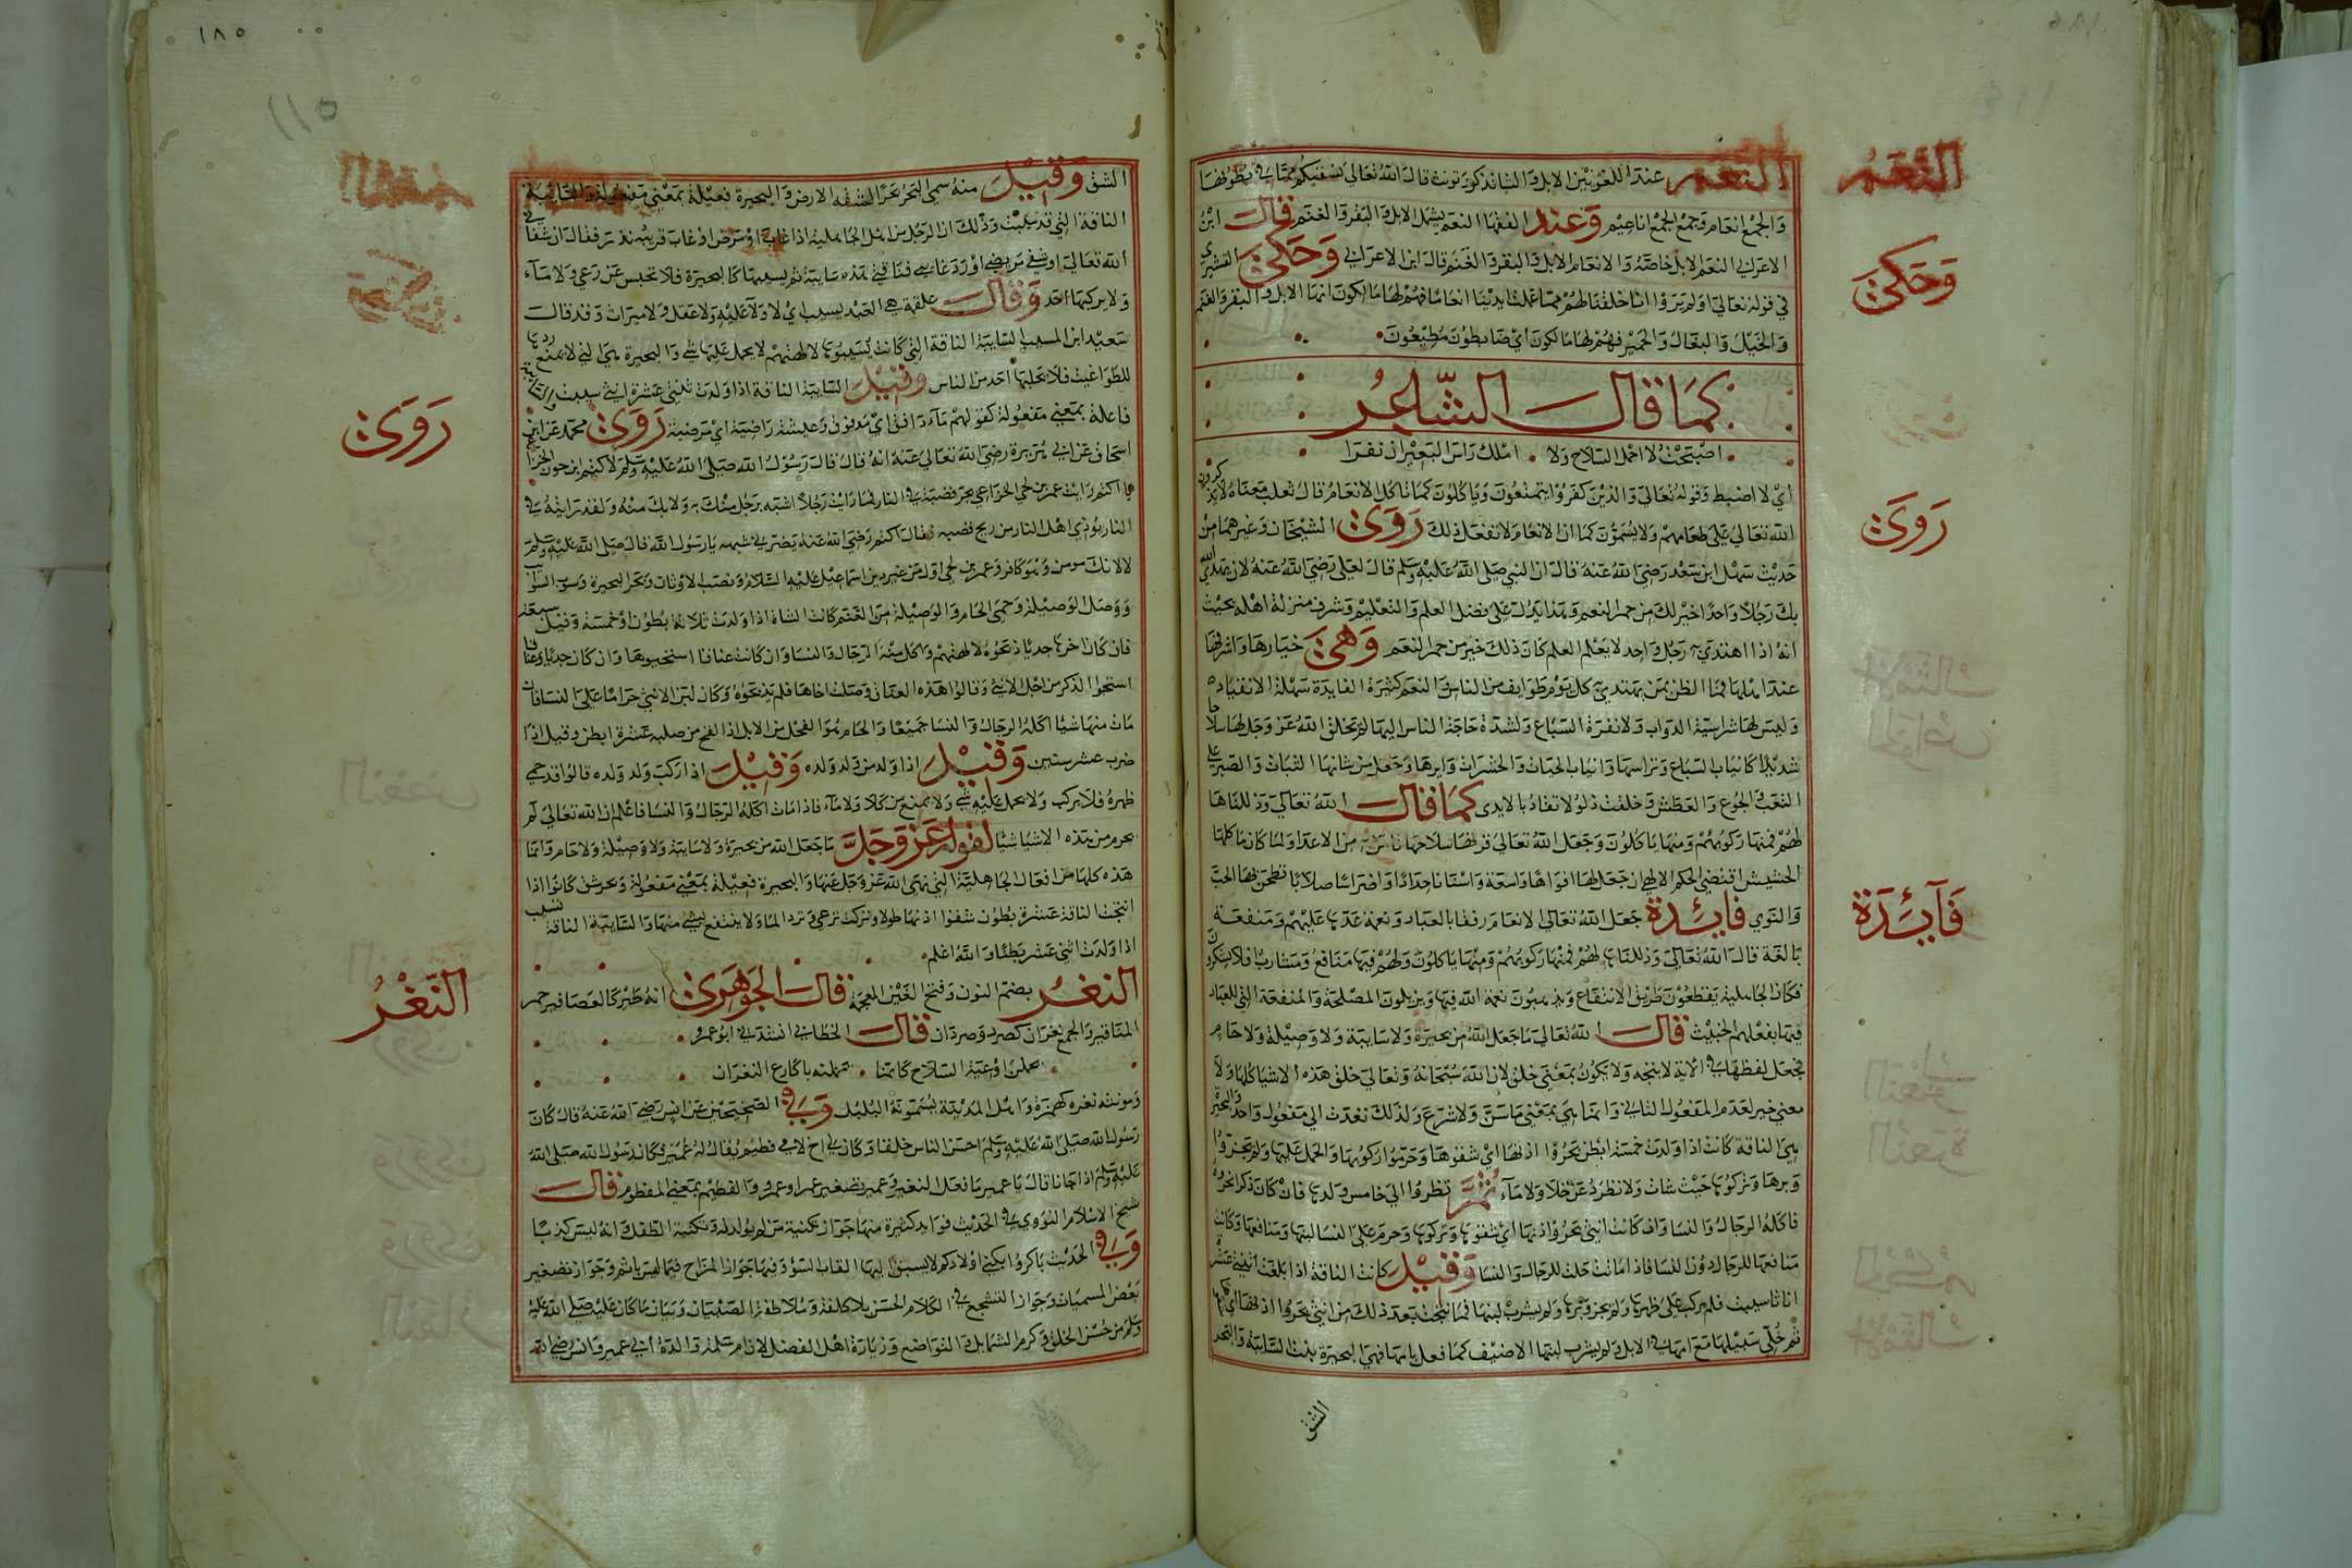 النعم
النعم عند اللغويين الابل والشا يذكر ويونث قال الله تعالي نسقيكم مما في بطونها
والجمع انعام وجمع الجمع اناعيم وعند الفقها النعم يشمل الابل والبقر والغنم قال ابن
الاعرابي النعم الابل خاصة والانعام الابل والبقر والغنم قال ابن الاعرابي وحكي القشيري
وحكي
في قوله تعالي اولم يروا انا خلقنا لهم مما عملت ايدينا انعاما فهم لها مالكون انها الابل والبقر والغنم
والخيل والبغال والحمير فهم لها مالكون اي ضابطون مطيعون
كما قال الشاعر
اصبحت لا احمل السلاح ولا املك راس البعير ان نفرا
اي لا اضبط وقوله تعالي والذين كفروا يتمتعون وياكلون كما تاكل الانعام قال ثعلب معناه لا يذكرون
الله تعالي علي طعامهم ولا يسمون كما ان الانعام لا تفعل ذلك روي الشيخان وغيرهما من
روي
حديث سهل ابن سعد رضي الله عنه قال ان النبي صلي الله عليه وسلم قال لعلي رضي الله عنه لان يهدي الله
بك رجلا واحدا خير لك من حمر النعم وهذا يدل علي فضل العلم والتعليم وشرف منزلة اهله بحيث
انه اذا اهتدي رجل واحد لا يعلم العلم كان ذلك خير من حمر النعم وهي خيارها واشرفها
عند اهلها فما الظن بمن يهتدي كل يوم طوايف من الناس والنعم كثيرة الفايدة سهلة الانقياد
وليس لها شراسة الدواب ولا نفرة السباع ولشدة حاجة الناس اليها لم يخلق الله عز وجل لها سلاحا
شديدا كانياب السباع وبراثنها وانياب الحيات والحشرات وابرها وجعل من شانها الثبات والصبر علي
التعب والجوع والعطش وخلقت ذلولا تقاد بالايدي كما قال الله تعالي وذللناها
لهم فمنها ركوبهم ومنها ياكلون وجعل الله تعالي قرنها سلاحها تامن به من الاعدا ولما كان ماكلها
الحشيش اقتضي الحكم الالهي ان جعل لها افواها واسعة واسنانا حدادا واضراسا صلابا تطحن بها الحب
والنوي فايدة جعل الله تعالي الانعام رفقا بالعباد ونعمة عدها عليهم ومنفعة
فآئدة
بالغة قال الله تعالي وذللناها لهم فمنها ركوبهم ومنها ياكلون ولهم فيها منافع ومشارب افلا يشكرون
فكان الجاهلية يقطعون طريق الانتفاع ويذهبون نعمة الله فيها ويزيلون المصلحة والمنفعة التي للعباد
فيها بفعلهم الخبيث قال الله تعالي ما جعل الله من بحيرة ولا سايبة ولا وصيلة ولا حام
فجعل لفظها في الاية لا يتجه ولا يكون بمعني خلق لان الله سبحانه وتعالي خلق هذه الاشيا كلها ولا
معني خير لعدم المفعول الثاني وانما هي بمعني ما سن ولا شرع ولذلك تعدت الي مفعول واحد والبحيرة
هي الناقة كانت اذا ولدت خمسة ابطن بحروا اذنها اي شقوها وحرموا ركوبها والحمل عليها ولم يجزوا
وبرها وتركوها حيث شات ولا تطرد عن كلا ولا مآء ثم نظروا الي خامس ولدها فان كان ذكرا نحروه
فاكله الرجال والنسا وان كانت انثي بحروا اذنها اي شقوها وتركوها وحرم علي النسا لبنها ومنافعها وكانت
منافعها للرجال دون النسا فاذا ماتت حلت للرجال والنسا وقيل كانت الناقة اذا بلغت اثنتي عشرة
اناثا سيبت فلم يركب علي ظهرها ولم يجز وبرها ولم يشرب لبنها فما نتجت بعد ذلك من انثي بحروا اذنها اي
ثم خلي سبيلها مع امها في الابل ولم يشرب لبنها الا ضيف كما فعل بامها فهي البحيرة بنت السايبة والبحر
الشق
١٨٥
الشق وقيل منه سمي البحر بحرا لشقه الارض والبحيرة فعيلة بمعني مفعولة والسايبة
الناقة التي قد سيبت وذلك ان الرجل من اهل الجاهلية اذا غاب او مرض او غاب قريبه نذر فقال ان شفاني
الله تعالي او شفي مريضي او رد غايبي فناقتي هذه سايبة ثم يسيبها كالبحيرة فلا تحبس عن رعي ولا مآء
ولا يركبها احد وقال علقمة هي العبد يسيب اي لا ولآ عليه ولا عقل ولا ميراث وقد قال
سعيد ابن المسيب السايبة الناقة التي كانت يسيبوها لالهتهم لا يحمل عليها شي والبحيرة هي التي لا يمنع درها
للطواغيت فلا يحلبها احد من الناس وقيل السايبة الناقة اذا ولدت ثنتي عشرة انثي سيبت والسايبة
فاعلة بمعني مفعولة كقولهم مآء دافق اي مدفوق وعيشة راضية اي مرضية روي محمد عن ابن
روي
اسحاق عن ابي هريرة رضي الله تعالي عنه انه قال قال رسول الله صلي الله عليه وسلم لاكثم ابن جون الخزاعي
يا اكثم رايت عمرو بن لحي الخزاعي يجر قضبه في النار فما رايت رجلا اشبه برجل منك به ولا بك منه ولقد رايته في
النار يوذي اهل النار من ريح قضبه فقال اكثم رضي الله عنه يضرني شبهه يا رسول الله قال صلي الله عليه وسلم
لا لانك مومن وهو كافر وعمرو بن لحي اول من غير دين اسماعيل عليه السلام ونصب الاوثان وبحر البحيرة وسيب السوايب
ووصل الوصيلة وحمي الحام والوصيلة من الغنم كانت الشاة اذا ولدت ثلاثة بطون او خمسة وقيل سبعة
فان كان اخرها جديا ذبحوه لالهتهم واكل منه الرجال والنسا وان كانت عناقا استحيوها وان كان جديا وعناقا
استحيوا الذكر من اجل الانثي وقالوا هذه العناق وصلت اخاها فلم يذبحوه وكان لبن الانثي حراما علي النسا فان
مات منها شيا اكله الرجال والنسا جميعا والحام هو الفحل من الابل اذا القح من صلبه عشرة ابطن وقيل اذا
ضرب عشر سنين وقيل اذا ولد من ولد ولده وقيل اذا ركب ولد ولده قالوا قد حمي
ظهره فلا يركب ولا يحمل عليه شي ولا يمنع من كلا ولا مآء فاذا مات اكله الرجال والنسا فاعلم ان الله تعالي لم
يحرم من هذه الاشيا شيا لقوله عز وجل ما جعل الله من بحيرة ولا سايبة ولا وصيلة ولا حام وانما
هذه كلها من افعال الجاهلية التي نهي الله عز وجل عنها والبحيرة فعيلة بمعني مفعولة وبحر شق كانوا اذا
انتجت الناقة عشرة بطون شقوا اذنها طولا وتركت ترعي وترد الما ولا ينتفع بشي منها والسايبة الناقة تسيب
اذا ولدت اثني عشر بطنا والله اعلم
النغر بضم النون وفتح الغين المعجمة قال الجوهري انه طير كالعصافير حمر
النغر
المناقير والجمع نغران كصرد وصردان قال الخطابي انشدني ابو عمرو
يحملن اوعية السلاح كانما يحملنه باكارع النغران
ومونثه نغره كهمزة واهل المدينة يسمونه البلبل وفي الصحيحين عن انس رضي الله عنه قال كان
رسول الله صلي الله عليه وسلم احسن الناس خلقا وكان لي اخ لامي فطيم يقال له عمير فكان رسول الله صلي الله
عليه وسلم اذا جانا قال يا عمير ما فعل النغير وعمير تصغير عمر او عمرو والفطيم بمعني المفطوم قال
شيخ الاسلام النووي في الحديث فوايد كثيرة منها جواز تكنية من لم يولد له وتكنية الطفل انه ليس كذبا
وفي الحديث باكروا بكني اولادكم لا يسبق اليها القاب السؤ وفيها جواز المزاح فيما ليس باثم وجواز تصغير
بعض المسميات وجواز التسجيع في الكلام الحسن بلا كلفة وملاطفة الصبيان وبيان ما كان عليه صلي الله عليه
وسلم من حسن الخلق وكرم الشمايل والتواضع وزيارة اهل الفضل لان ام سلمة والدة ابي عمير وانس رضي الله